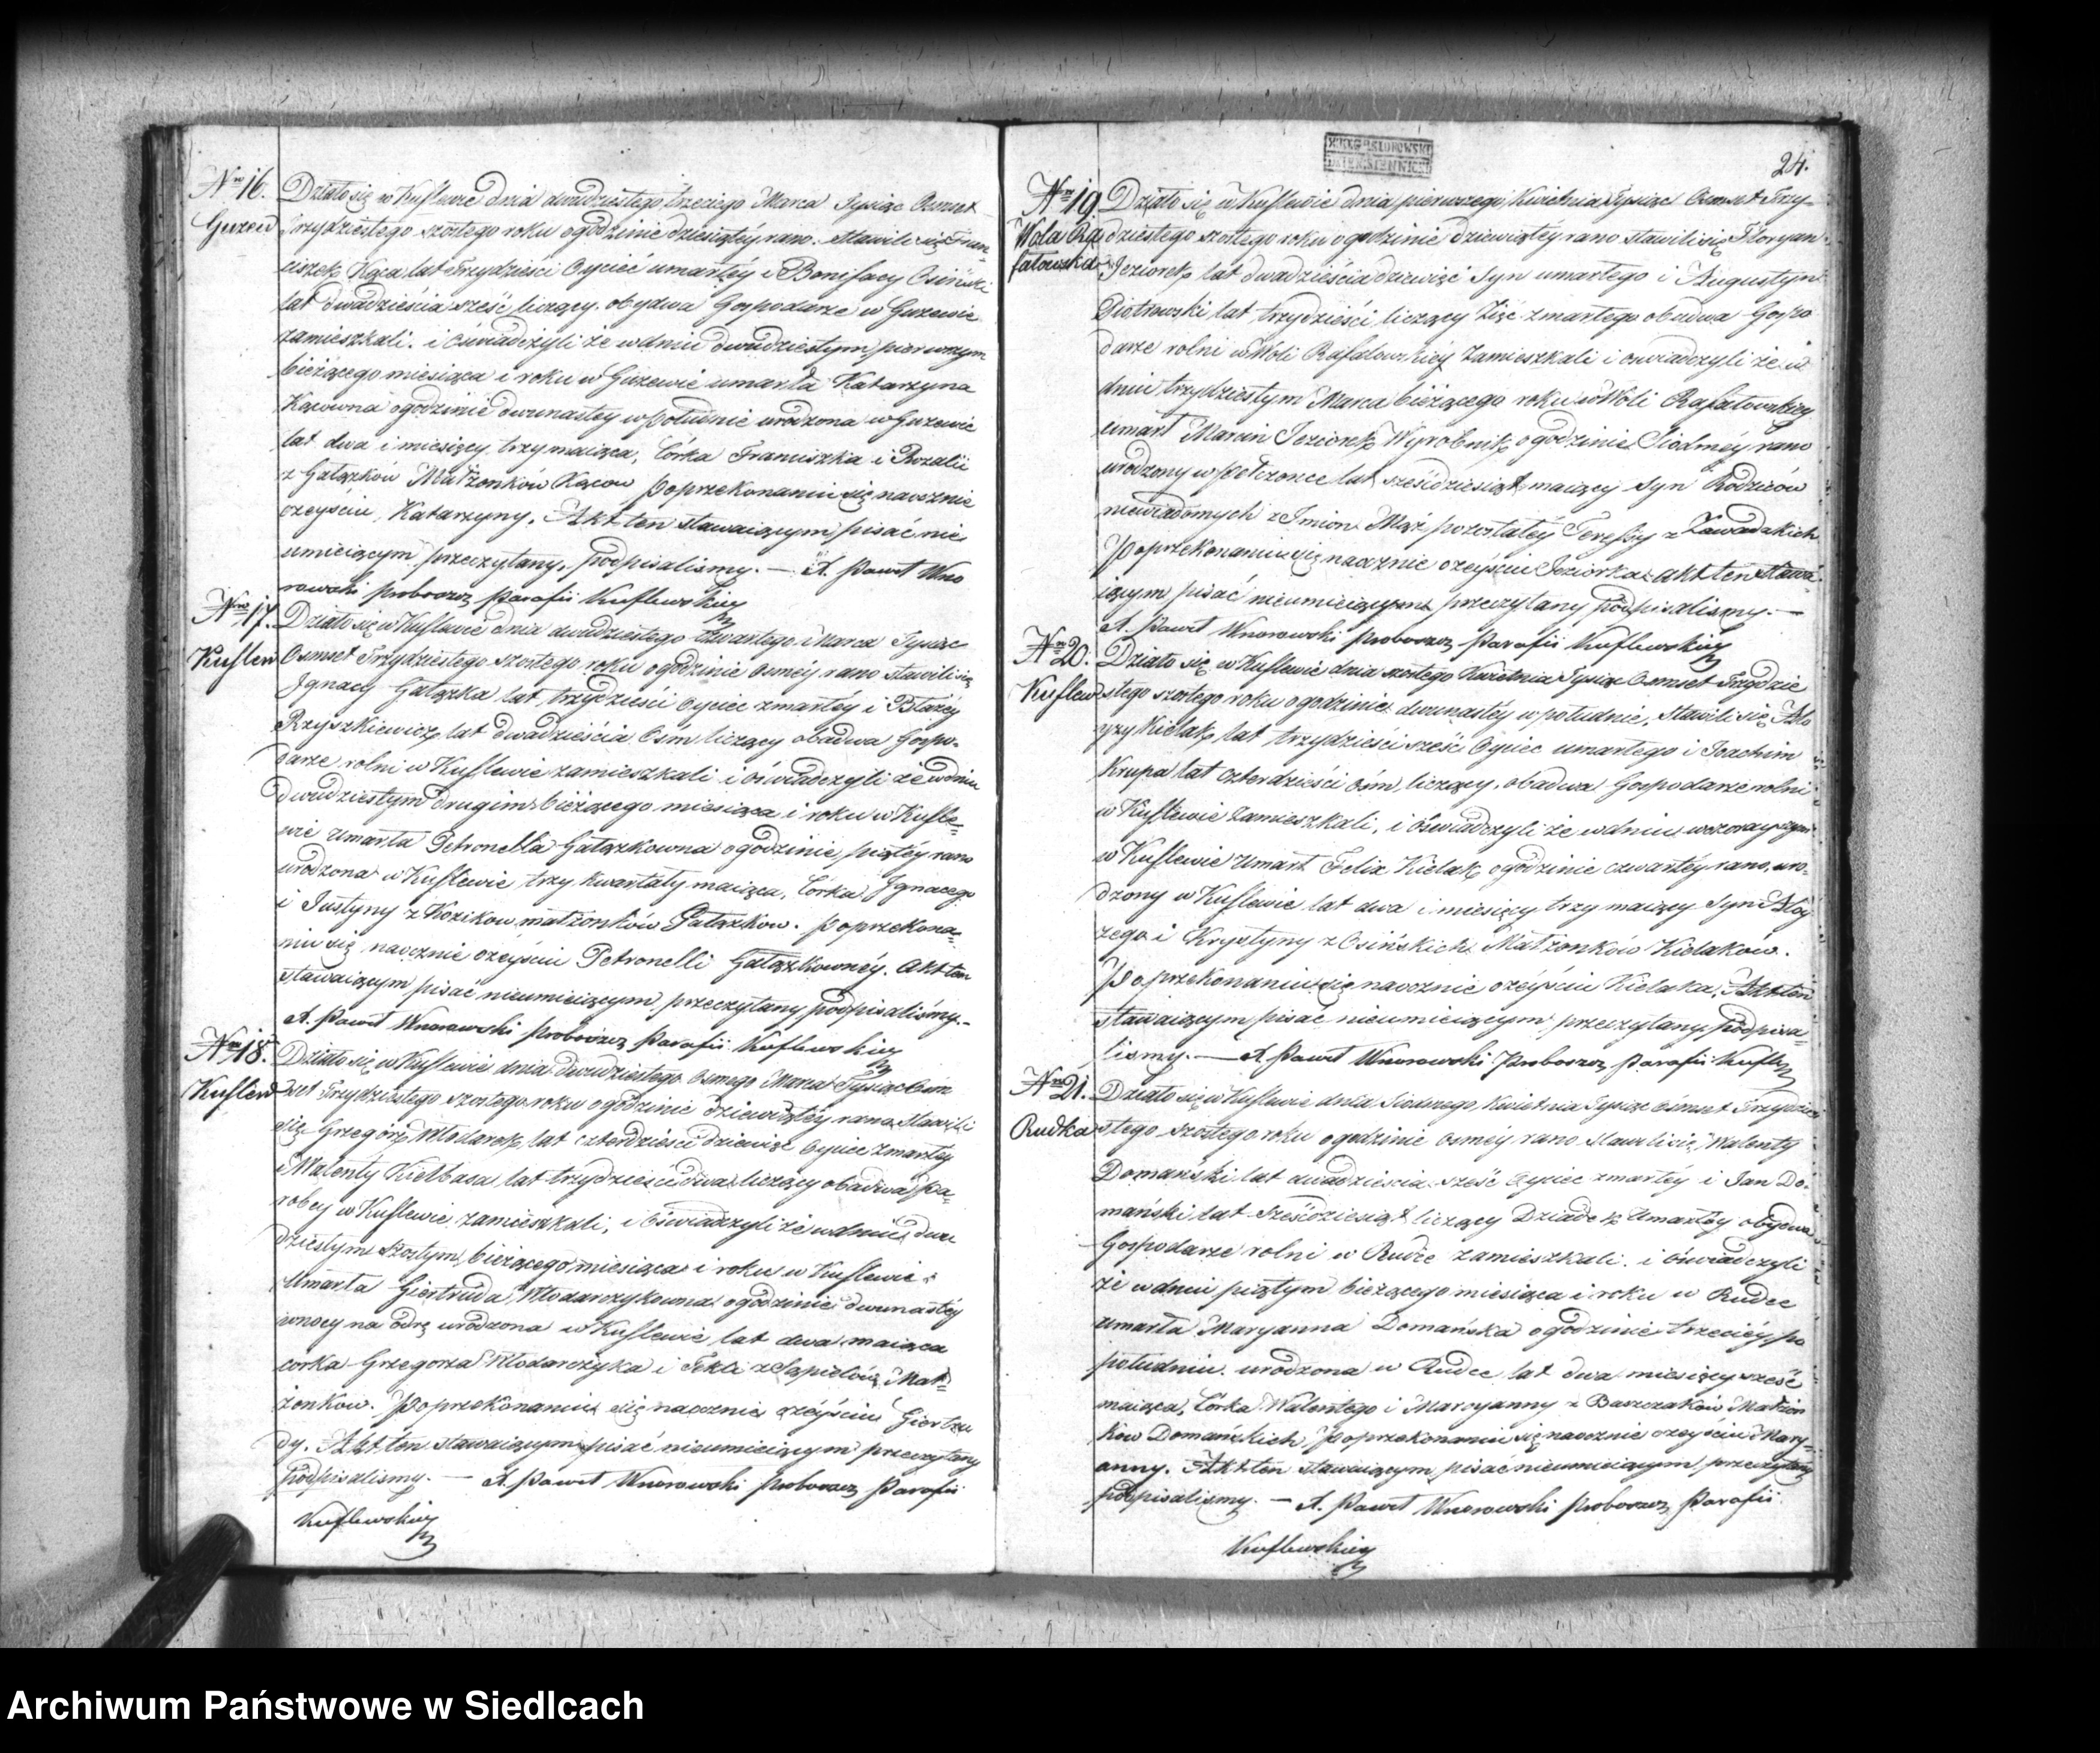 Nro 16.
Guzew
Działo się w Kuflewie dnia dwudziestego trzeciego Marca Tysiąc Osmset
Trzydziestego szostego roku o godzinie dziesiątéy rano. Stawili się Fran=
ciszek Kąca lat Trzydzieści Oyciec umarłéy i Bonifacy Osiński
lat dwadzieścia sześć liczący, obydwa Gospodarze w Guzewie
zamieszkali. i Oświadczyli że w dniu dwudziestym pierwszym
bieżącego miesiąca i roku w Guzewie umarła Katarzyna
Kącowna o godzinie dwunastey w południe urodzona w Guzewie
lat dwa i miesięcy trzy maiąca, Córka Franciszka i Rozalii
z Gałązków Małżonków Kąców po przekonaniu się naocznie
o zeyściu Katarzyny. Akt ten stawaiącym pisać nie
umieiącym przeczytany, podpisaliśmy. — X. Paweł Wno
rowski Proboszcz Parafii Kuflewskiey
Nro 17.
Kuflew
Działo się w Kuflewie dnia dwudziestego czwartego Marca Tysiąc
Osmset Trzydziestego szostego roku o godzinie osméy rano stawili się
Jgnacy Gałązka lat trzydzieści Oyciec zmarłéy i Błażéy
Rzyszkiewicz lat dwadzieścia Osm liczący obadwa Gospo-
darze rolni w Kuflewie zamieszkali i oświadczyli że w dniu
dwudziestym drugim bieżącego miesiąca i roku w Kufle=
wie umarła Petronella Gałązkowna o godzinie piątéy rano
urodzona w Kuflewie trzy kwartały maiąca, Córka Jgnacego
i Justyny z Kozikow małżonków Gałązkow. po przekona=
niu się naocznie o zéyściu Petronelli Gałązkownéy. Akt ten
stawaiącym pisać nieumieiącym przeczytany podpisaliśmy.-
X. Paweł Wnorowski Proboszcz Parafii Kuflewskiey
Nro 18.
Kuflew
Działo się w Kuflewie dnia Dwudziestego Osmego Marca Tysiąc Osm
set Trzydziestego szostego roku o godzinie dziewiątéy rano Stawili
się Grzegórz Włodarek lat czterdzieści dziewięć Oyciec zmarłey
i Walenty Kiełbasa lat trzydzieści dwa liczący obadwa Pa=
robcy w Kuflewie zamieszkali, i Oświadczyli że w dniu dwu
dziestym szostym bieżącego miesiąca i roku w Kuflewie
Umarła Giertruda Włodarczykowna o godzinie dwunastéy
w nocy na odrę urodzona w Kuflewie lat dwa maiąca
corka Grzegorza Włodarczyka i Tekli z Małż=
żonkow. Po przekonaniu się naocznie o zéyściu Giertru
dy. Akt ten stawaiącym pisać nieumieiącym przeczytany
podpisaliśmy. — X. Paweł Wnorowski Proboszcz Parafii
Kuflewskiey
24.
Nro 19.
Wola Ra
fałowska
Działo się w Kuflewie dnia pierwszego Kwietnia Tysiąc Osmset Trzy=
dziestego szostego roku o godzinie dziewiątéy rano stawili się Floryan
Jeziorek lat dwadzieścia dziewięć Syn umarłego i Augustyn
Piotrowski lat trzydzieści liczący Zięć zmarłego obadwa Gospo
darze rolni w Woli Rafałowskiéy zamieszkali i oświadczyli że w
dniu trzydziestym Marca bieżącego roku w Woli Rafałowskiey
umarł Marcin Jeziorek Wyrobnik o godzinie Siodméy rano
urodzony w lat sześćdziesiąt maiący syn Rodziców
niewiadomych z Jmion Mąż pozostałéy Teressy z Zawadzkich
Po przekonaniu się naocznie o zeyściu Jeziorka, akt ten stawa=
iącym pisać nieumieiącym przeczytany podpisaliśmy. —
X. Paweł Wnorowski Proboszcz Parafii Kuflewskiey
Nro 20.
Kuflew
Działo się w Kuflewie dnia szostego Kwietnia Tysiąc Osmset Trzydzie
stego szostego roku o godzinie dwunastéy w południe, stawili się Alo
yzy Kielak lat trzydzieści sześć Oyciec umarłego i Joachim
Krupa lat czterdzieści óśm liczący, obadwa Gospodarze rolni
w Kuflewie zamieszkali, i oświadczyli że w dniu wczorayszym
w Kuflewie umarł Felix Kielak o godzinie czwartéy rano, uro-
dzony w Kuflewie lat dwa i miesięcy trzy maiący Syn Aloy
zego i Krystyny z Osińskich Małżonków Kielaków.
Po przekonaniu się naocznie o zéyściu Kielaka, Akt ten
stawaiącym pisać nieumieiącym przeczytany podpisa=
liśmy. — X Paweł Wnorowski Proboszcz Parafii Kufle
Nro 21.
Rudka
Działo się w Kuflewie dnia Siodmego Kwietnia Tysiąc Osmset Trzydzie
stego szostego roku o godzinie osméy rano stawili się Walenty
Domański lat dwadzieścia sześć Oyciec zmarłéy i Jan Do-
mański lat sześćdziesiąt liczący Dziadek Umarłéy obydwa
Gospodarze rolni w Rudce zamieszkali. i Oświadczyli
że w dniu piątym bieżącego miesiąca i roku w Rudce
umarła Maryanna Domańska o godzinie trzeciéy po
południu. urodzona w Rudce lat dwa miesięcy sześć
maiąca, Córka Walentego i Maryanny z Baszczaków Małżon
ków Domańskich Po przekonaniu się naocznie o zeyściu Mary=
anny. Akt ten stawaiącym pisać nieumieiącym przeczytany
podpisaliśmy. — X. Paweł Wnorowski Proboszcz Parafii
Kuflewskiey
Archiwum Państwowe w Siedlcach